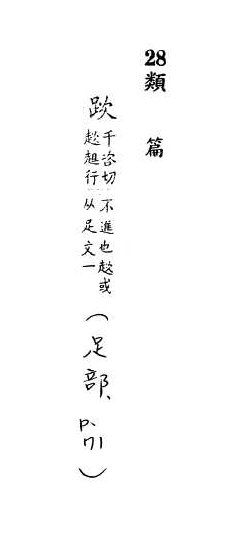 28
類 篇
千咨切
趑趄行
不進也趑或
从足文一
(足部、p.71)